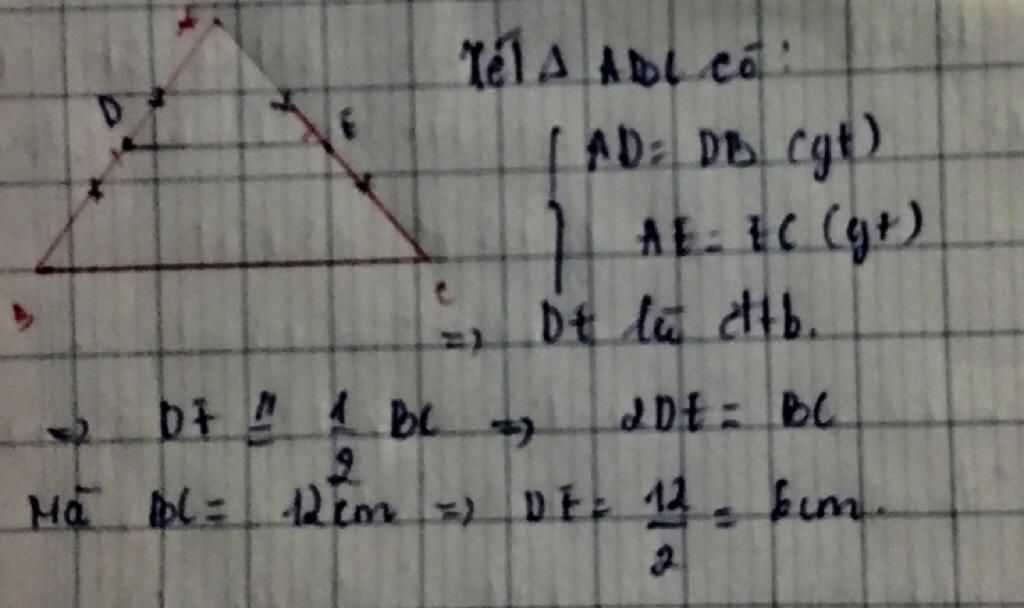 A
D
E
B
C
Xét Δ ABC có:
AD = DB (gt)
AE = EC (gt)
=> DE là đttb.
=> DE // = 1/2 BC => 2DE = BC
Mà BC = 12cm => DE = 12/2 = 6cm.